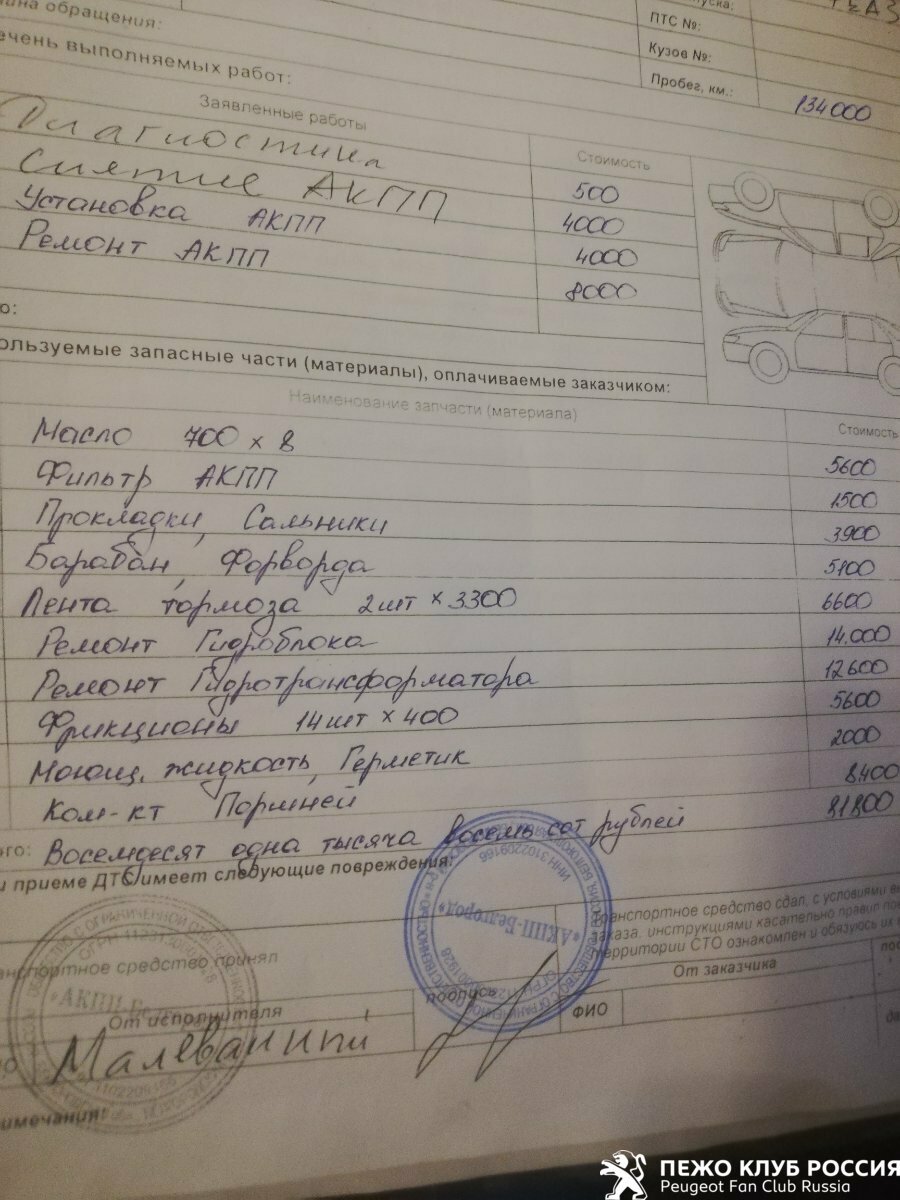 ина обращения:
ПТС №:
Кузов №:
Пробег, км.: 134000
ечень выполняемых работ:
Заявленные работы
Стоимость
Диагностика 500
Снятие АКПП 4000
Установка АКПП 4000
Ремонт АКПП 8000
о:
ользуемые запасные части (материалы), оплачиваемые заказчиком:
Наименование запчасти (материала)
Стоимость
Масло 700 x 8 5600
Фильтр АКПП 1500
Прокладки, Сальники 3900
Барабан, Форворда 5100
Лента тормоза 2шт x 3300 6600
Ремонт Гидроблока 14.000
Ремонт Гидротрансформатора 12600
Фрикционы 14шт x 400 5600
Моющ. жидкость, Герметик 2000
Ком-кт Поршней 8400
81800
ого: Восемдесят одна тысяча восемь сот рублей
и приеме ДТС имеет следующие повреждения:
«АКПП-Белгород»
ИНН 3102209166
Транспортное средство сдал, с условиями
заказа, инструкциями касательно правил
территории СТО ознакомлен и обязуюсь их
анспортное средство принял
От исполнителя
подпись
От заказчика
ФИО
Малеванный
римечания:
ПЕЖО КЛУБ РОССИЯ
Peugeot Fan Club Russia